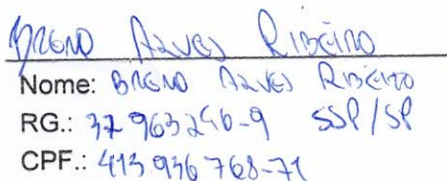 Breno Alves Ribeiro
Nome: Breno Alves Ribeiro
RG.: 37 963246-9 SSP/SP
CPF.: 413 936 768-71